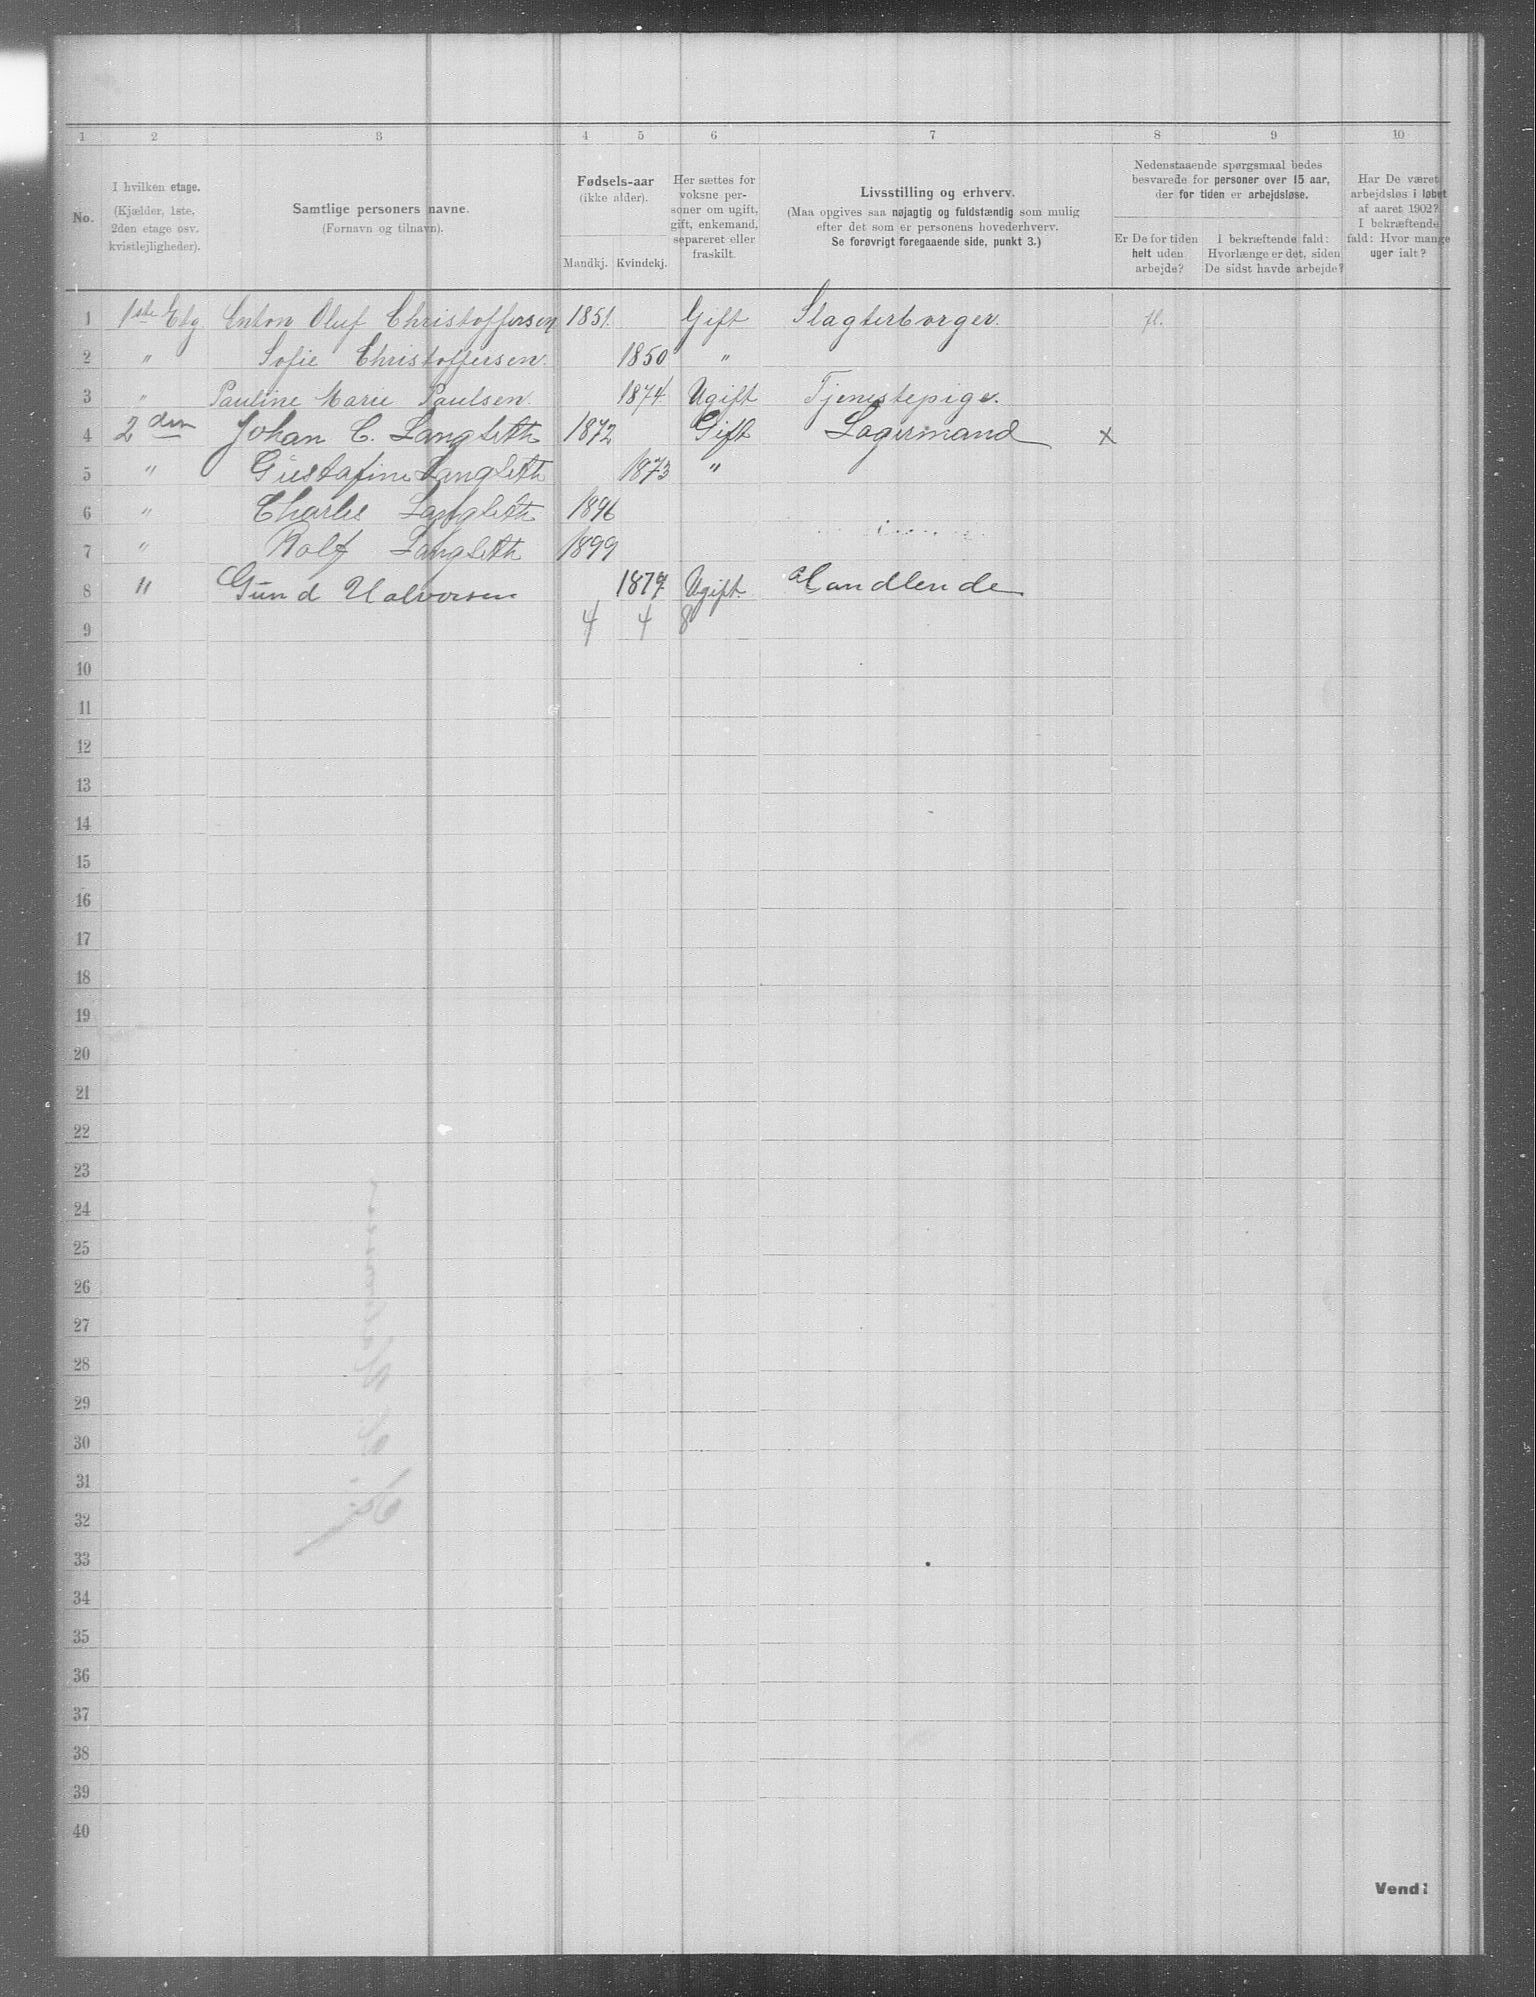 1 2 3 4 5 6 7 8 9 10
No.
I hvilken etage.
(Kjælder, 1ste,
2den etage osv.
kvistlejligheder).
Samtlige personers navne.
(Fornavn og tilnavn).
Fødsels-aar
(ikke alder).
Mandkj. Kvindekj.
Her sættes for
voksne per-
soner om ugift,
gift, enkemand,
separeret eller
fraskilt.
Livsstilling og erhverv.
(Maa opgives saa nøjagtig og fuldstændig som mulig
efter det som er personens hovederhverv.
Se forøvrigt foregaaende side, punkt 3.)
Nedenstaaende spørgsmaal bedes
besvarede for personer over 15 aar,
der for tiden er arbejdsløse.
Er De for tiden
helt uden
arbejde?
I bekræftende fald:
Hvorlænge er det, siden
De sidst havde arbejde?
Har De været
arbejdsløs i løbet
af aaret 1902?
I bekræftende
fald: Hvor mange
uger ialt?
1 1ste Etg Anton Oluf Christoffersen 1851. Gift Slagterborger. fl.
2 " Sofie Christoffersen. 1850 "
3 " Pauline Marie Paulsen. 1874. Ugift Tjenestepige.
4 2den Johan C. Langseth 1872 Gift Lagermand x
5 " Gustafine Langseth 1873 "
6 " Charles Langseth 1896
7 " Rolf Langseth 1899
8 " Gund Halvorsen 1877 Ugift. Handlende
9 4 4 8
10
11
12
13
14
15
16
17
18
19
20
21
22
23
24
25
26
27
28
29
30
31
32
33
34
35
36
37
38
39
40
Vend!